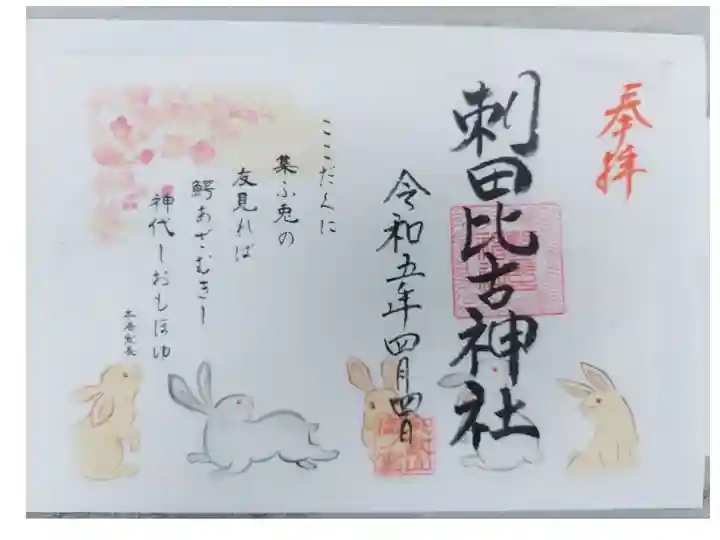 奉拝
刺田比古神社
令和五年四月四日
ここだくに
集ふ兎の
友見れば
鰐あざむきし
神代しおもほゆ
本居宣長